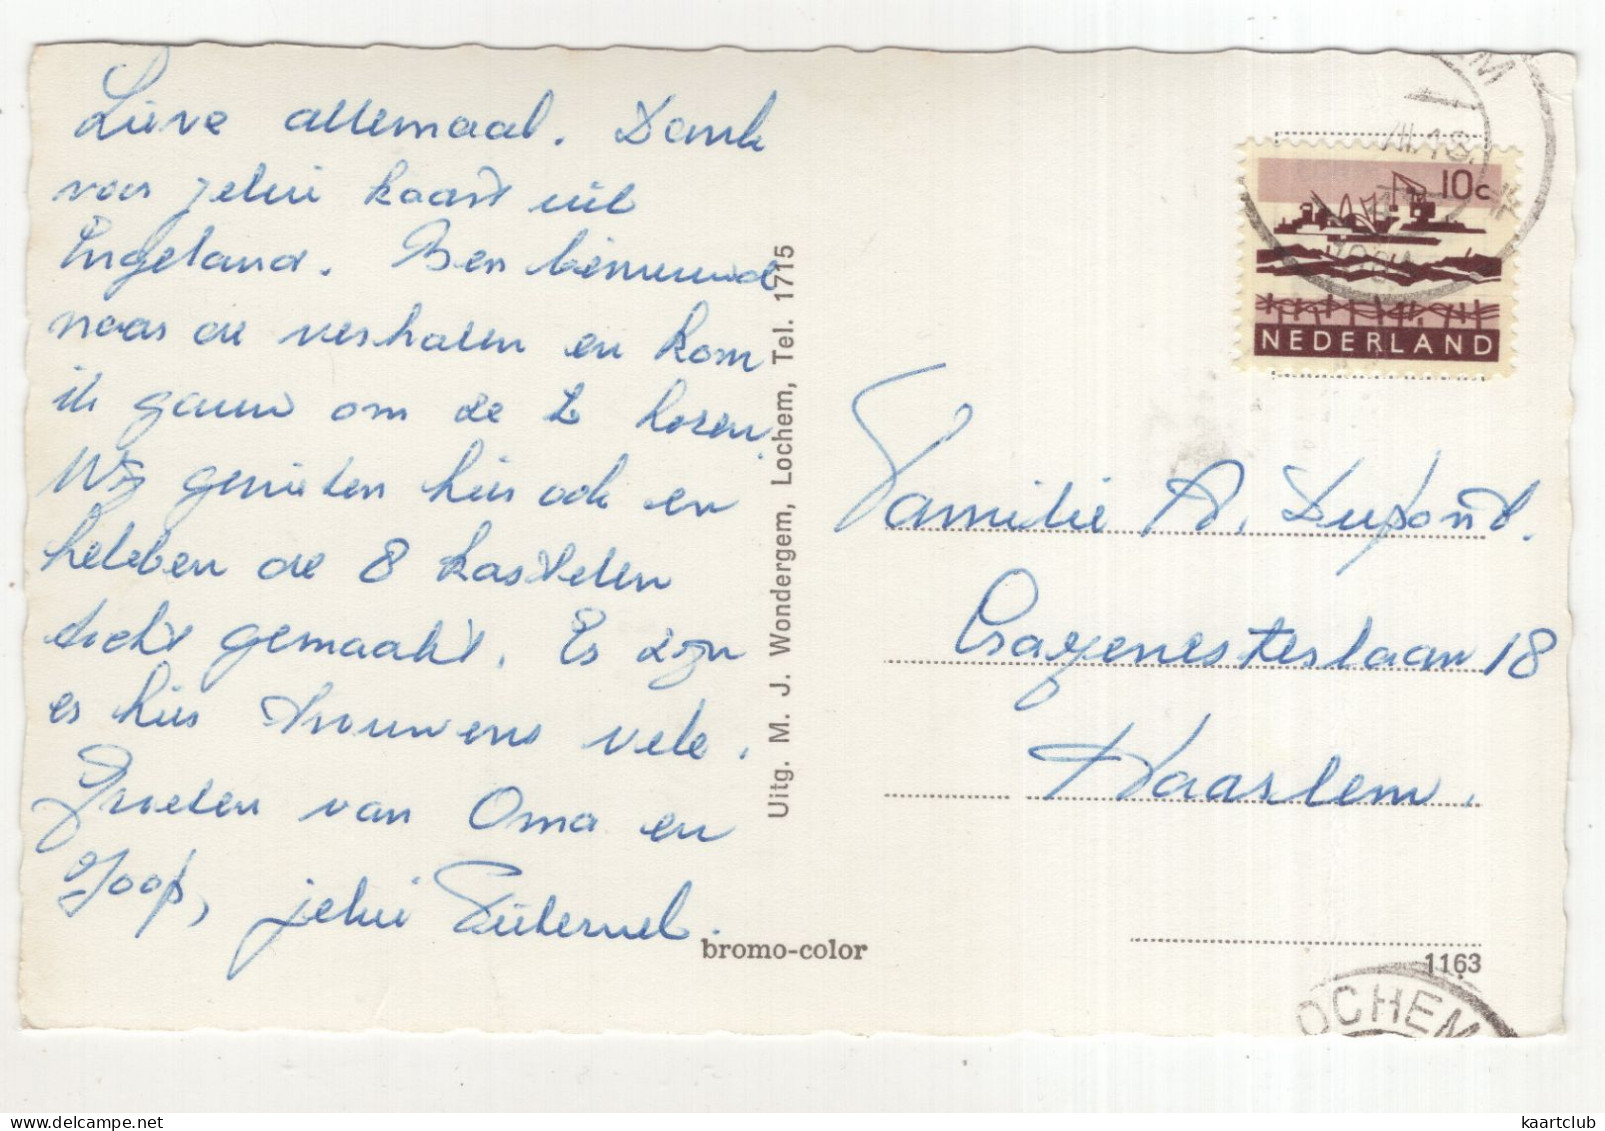 Lieve allemaal. Dank
voor jelui kaart uit
Engeland. Ben benieuwd
naar de verhalen en kom
ik gauw om de 2 horen.
Wij genieten hier ook en
hebben de 8 kastelen
tocht gemaakt. Er zijn
er hier trouwens vele.
Groeten van Oma en
Joop, jelui
Uitg. M. J. Wondergem, Lochem, Tel. 1715
bromo-color
10c
NEDERLAND
Familie A. Dupont.
Crayenesterlaan 18
Haarlem.
1163
OCHEM